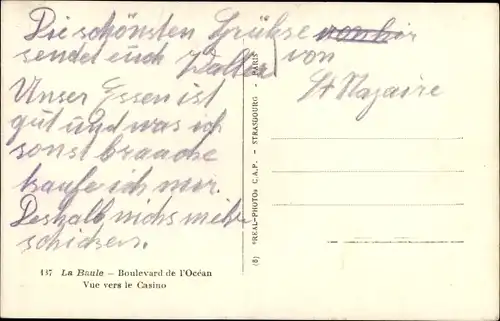 Die schönsten Grükse von hir
sendet euch Walter von
St Nazaire
Unser Essen ist
gut und was ich
sonst brauche
kaufe ich mer.
Deshalb nichs mehr
schicken.
137 La Baule – Boulevard de l'Océan
Vue vers le Casino
(8) "REAL-PHOTO" C.A.P. - STRASBOURG - PARIS